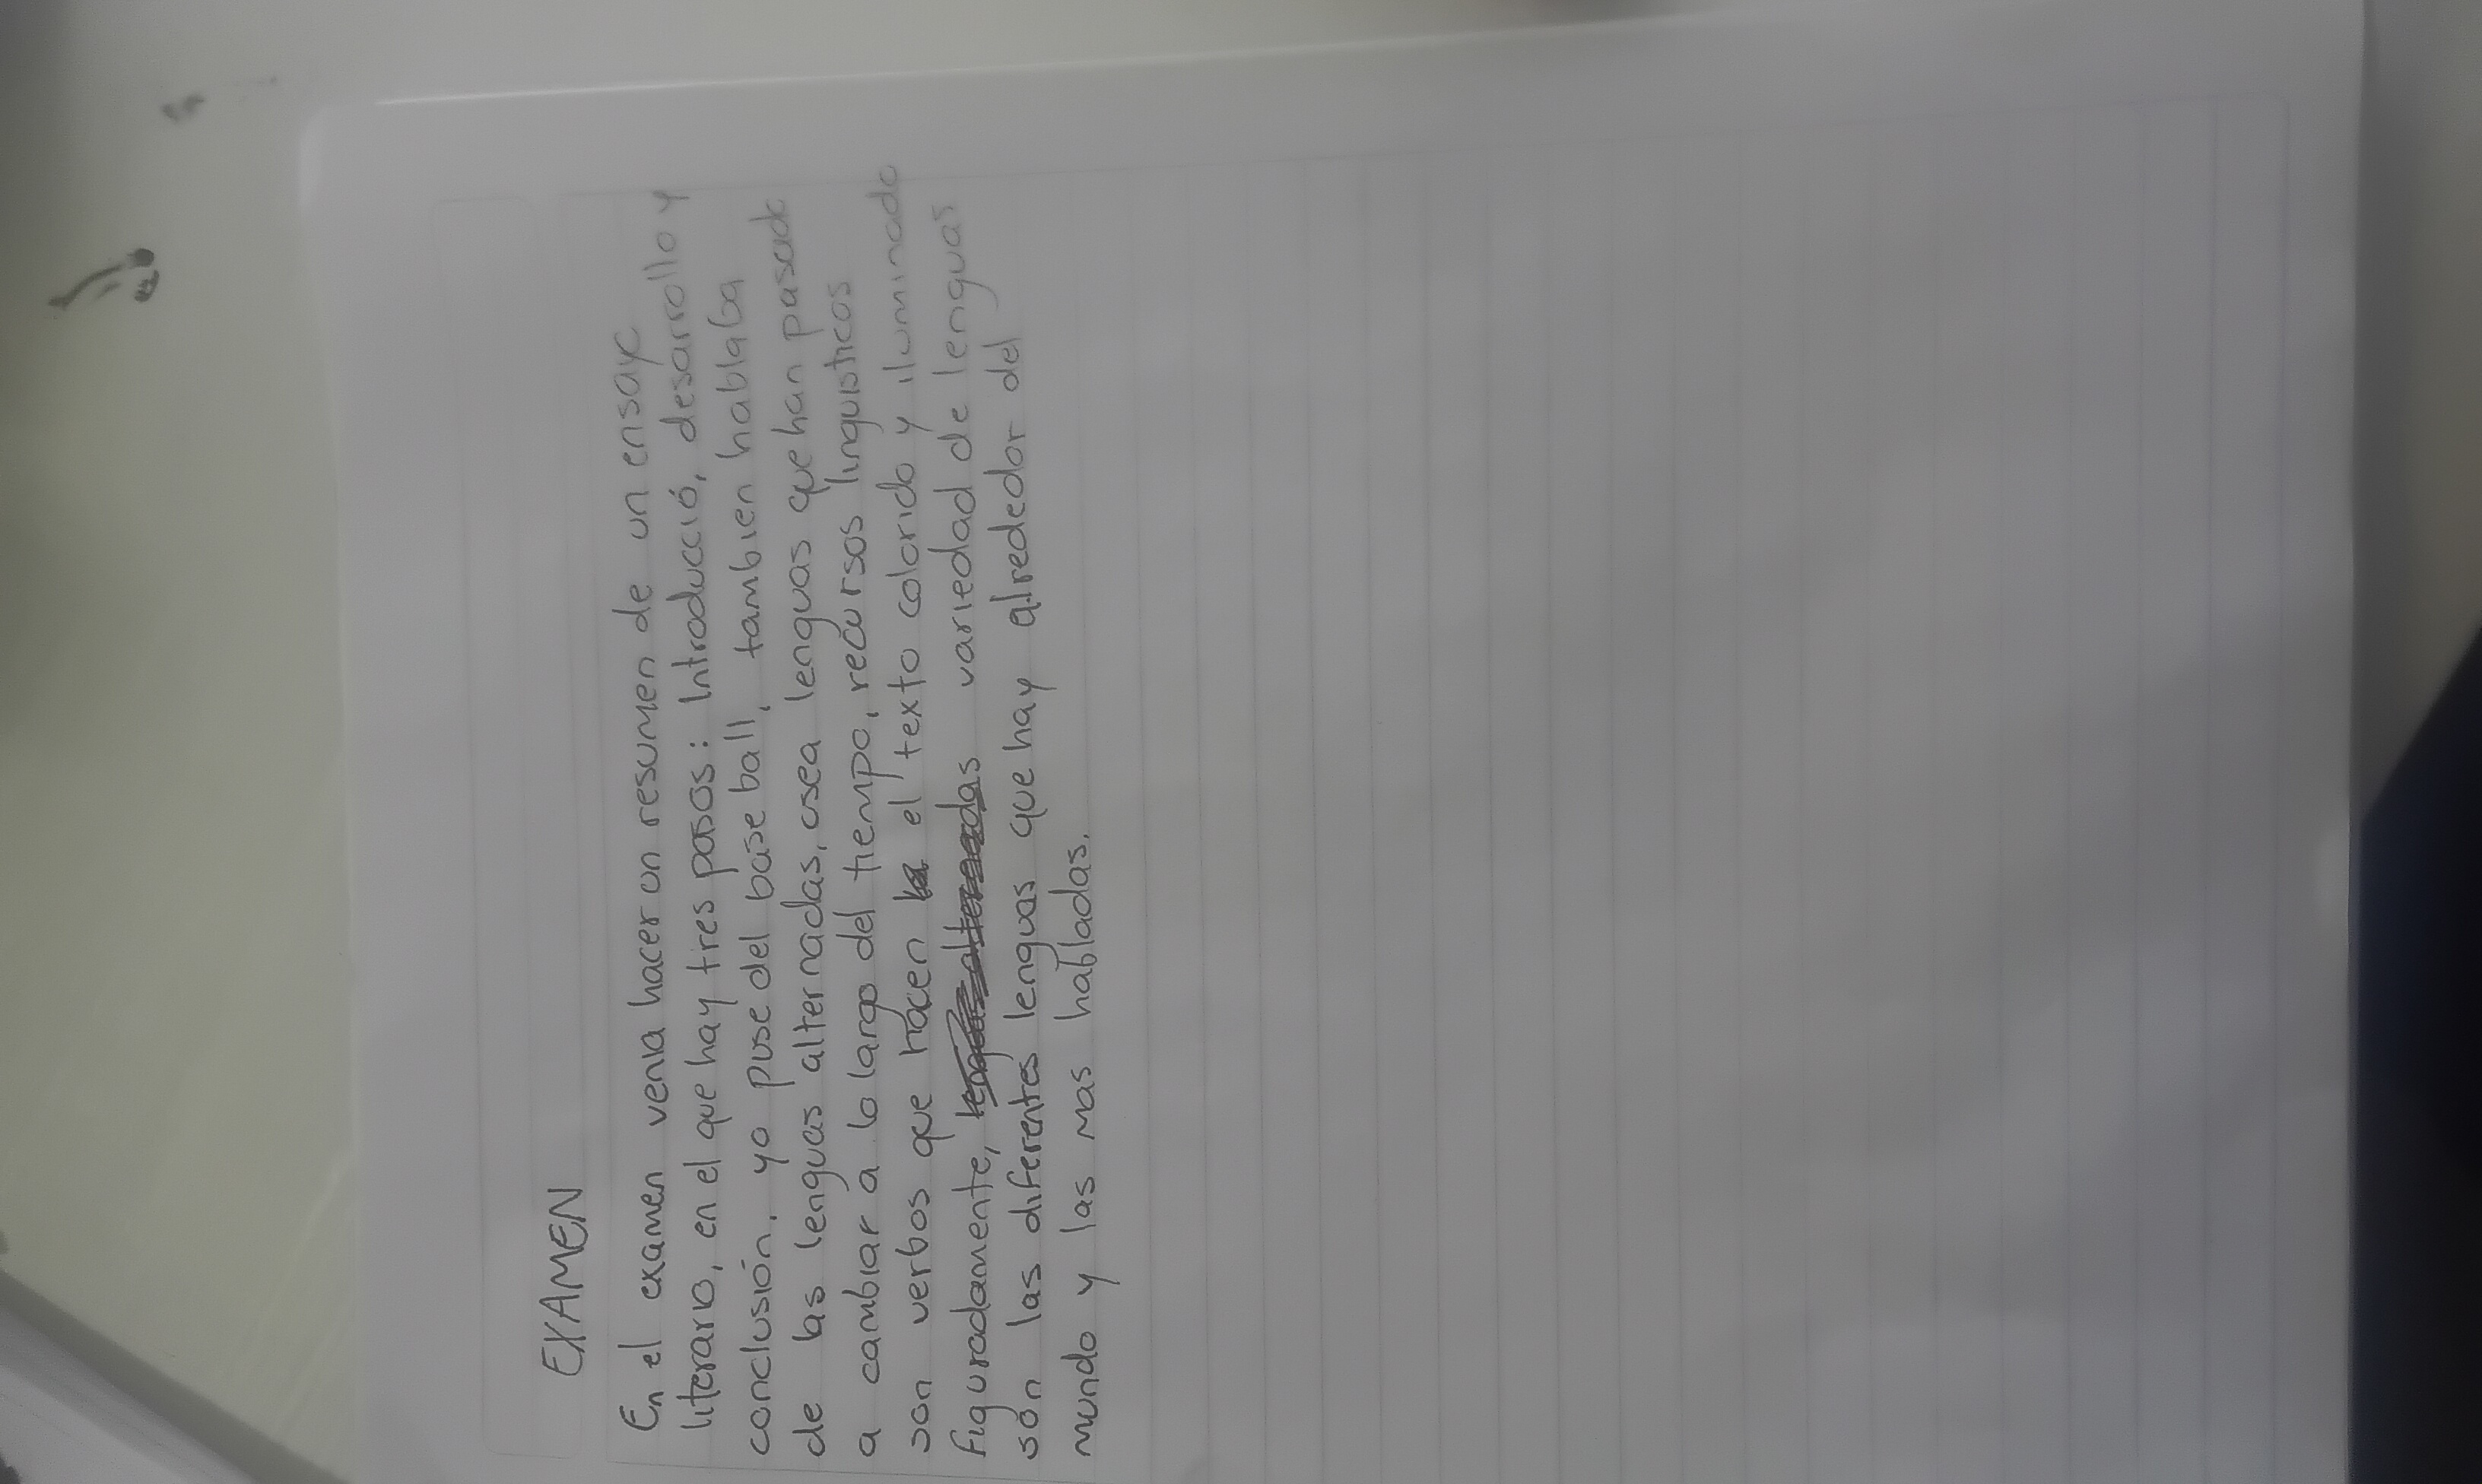 EXAMEN
En el examen venia hacer un resumen de un ensayo
literario, en el que hay tres pasos: Introducció, desarrollo y
conclusión, yo puse del base ball, tambien hablaba
de las lenguas alternadas, osea lenguas que han pasado
a cambiar a lo largo del tiempo, recursos linguisticos
son verbos que hacen el texto colorido y iluminado
figuradamente, variedad de lenguas
son las diferentes lenguas que hay alrededor del
mundo y las mas habladas.